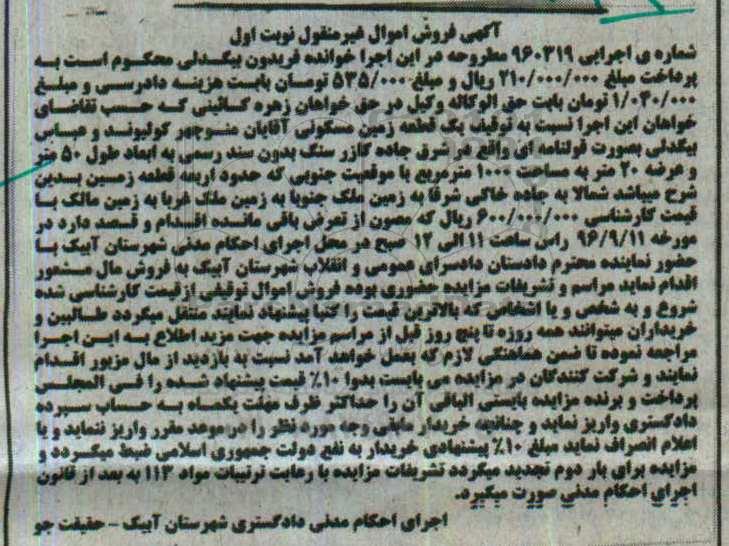 آگهی فروش اموال غیرمنقول نوبت اول
شماره ی اجرایی ۹۶۰۳۱۹ مطروحه در این اجرا خوانده فریدون بیگدلی محکوم است به
پرداخت مبلغ ۲۱۰/۰۰۰/۰۰۰ ریال و مبلغ ۵۳۵/۰۰۰ تومان بابت هزینه دادرسی و مبلغ
۱/۰۴۰/۰۰۰ تومان بابت حق الوکاله وکیل در حق خواهان زهره کائینی که حسب تقاضای
خواهان این اجرا نسبت به توقیف یک قطعه زمین مسکونی آقایان منوچهر کولیوند و عباس
بیگدلی بصورت قولنامه ای واقع در شرق جاده کازر سنگ بدون سند رسمی به ابعاد طول ۵۰ متر
و عرضه ۲۰ متر به مساحت ۱۰۰۰ مترمربع با موقعیت جنوبی که حدود اربعه قطعه زمین بدین
شرح میباشد شمالا به جاده خاکی شرقا به زمین ملک جنوبا به زمین ملک غربا به زمین مالک با
قیمت کارشناسی ۶۰۰/۰۰۰/۰۰۰ ریال که مصون از تعرض باقی مانده اقدام و قصد دارد در
مورخه ۹۶/۹/۱۱ راس ساعت ۱۱ الی ۱۲ صبح در محل اجرای احکام مدنی شهرستان آبیک با
حضور نماینده محترم دادستان دادسرای عمومی و انقلاب شهرستان آبیک به فروش مال مشعور
اقدام نماید مراسم و تشریفات مزایده حضوری بوده فروش اموال توقیفی ازقیمت کارشناسی شده
شروع و به شخص و یا اشخاص که بالاترین قیمت را کتبا پیشنهاد نمایند منتقل میگردد طالبین و
خریداران میتوانند همه روزه تا پنج روز قبل از مراسم مزایده جهت مزید اطلاع به این اجرا
مراجعه نموده تا ضمن هماهنگی لازم که بعمل خواهد آمد نسبت به بازدید از مال مزبور اقدام
نمایند و شرکت کنندگان در مزایده می بایست بدوا ۱۰٪ قیمت پیشنهاد شده را فی المجلس
پرداخت و برنده مزایده بایستی الباقی آن را حداکثر ظرف مهلت یکماه به حساب سپرده
دادگستری واریز نماید و چنانچه خریدار مابقی وجه مورد نظر را در موعد مقرر واریز ننماید و یا
اعلام انصراف نماید مبلغ ۱۰٪ پیشنهادی خریدار به نفع دولت جمهوری اسلامی ضبط میگردد و
مزایده برای بار دوم تجدید میگردد تشریفات مزایده با رعایت ترتیبات مواد ۱۱۳ به بعد از قانون
اجرای احکام مدنی صورت میگیرد.
اجرای احکام مدنی دادگستری شهرستان آبیک - حقیقت جو